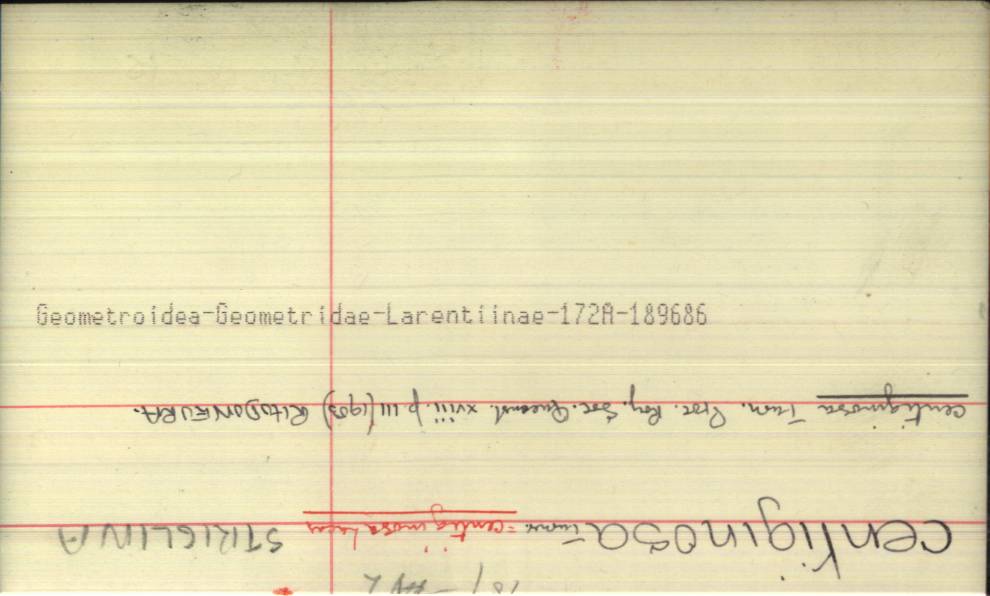 centiginosa Turn. = centiginosa Lucas STRIGLINA
centiginosa Turn. Proc. Roy. Soc. Queensl. xviii. p. 111 (1903) RHODONEURA.
Geometroidea-Geometridae-Larentiinae-172A-189686